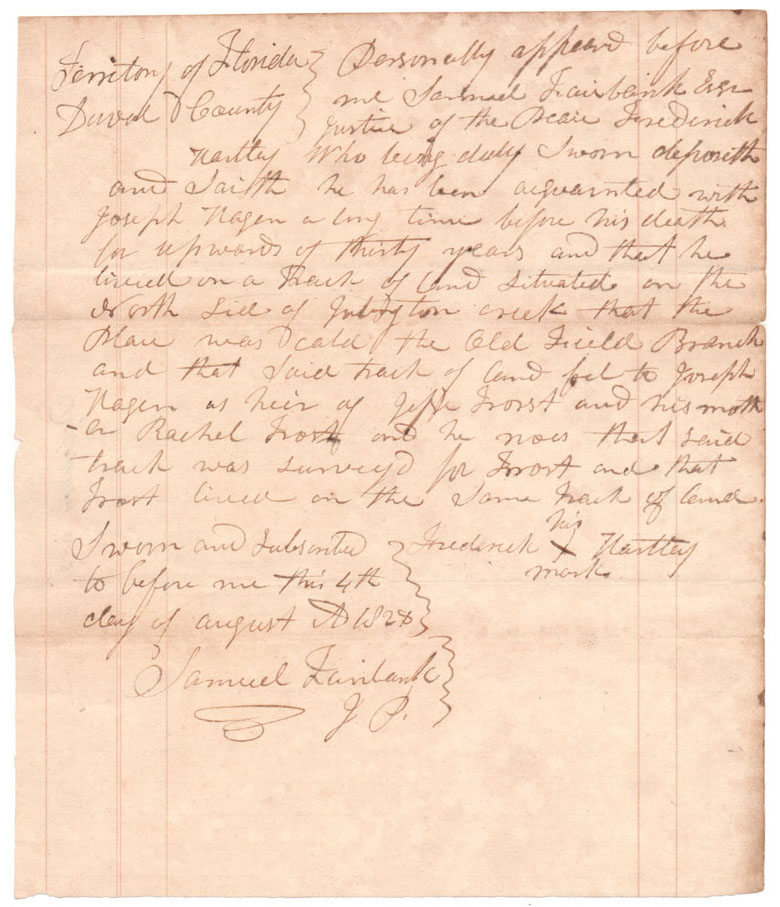 Territory of Florida } Personally appeard before
Duval County } me Samuel Fairbank Esqr
Justice of the Peace Frederick
Hartley Who being duly Sworn deposith
and Saith he has been acquainted with
Joseph Hagen a long time before his death
for upwards of thirty years and that he
lived on a Track of Land situated on the
North Side of Julington creek that the
Place was cald the Old Field Branch
and that said track of Land fel to Joseph
Hagen as heir of Jesse Frost and his moth
-er Rachel Frost and he noes that said
track was survey'd for Frost and that
Frost lived on the Same track of Land.
Sworn and Subscribed } Frederick his X mark Hartley
to before me this 4th
day of august AD 182
Samuel Fairbank
J. P.